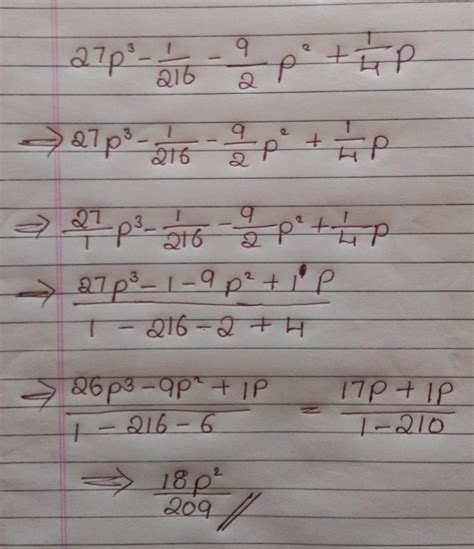 27p³ - 1/216 - 9/2 p² + 1/4 p
⇒ 27p³ - 1/216 - 9/2 p² + 1/4 p
⇒ 27/1 p³ - 1/216 - 9/2 p² + 1/4 p
⇒ 27p³ - 1 - 9p² + 1 p
1 - 216 - 2 + 4
⇒ 26p3 - 9p² + 1p / 1 - 216 - 6 = 17p + 1p / 1 - 210
⇒ 18p² / 209 //